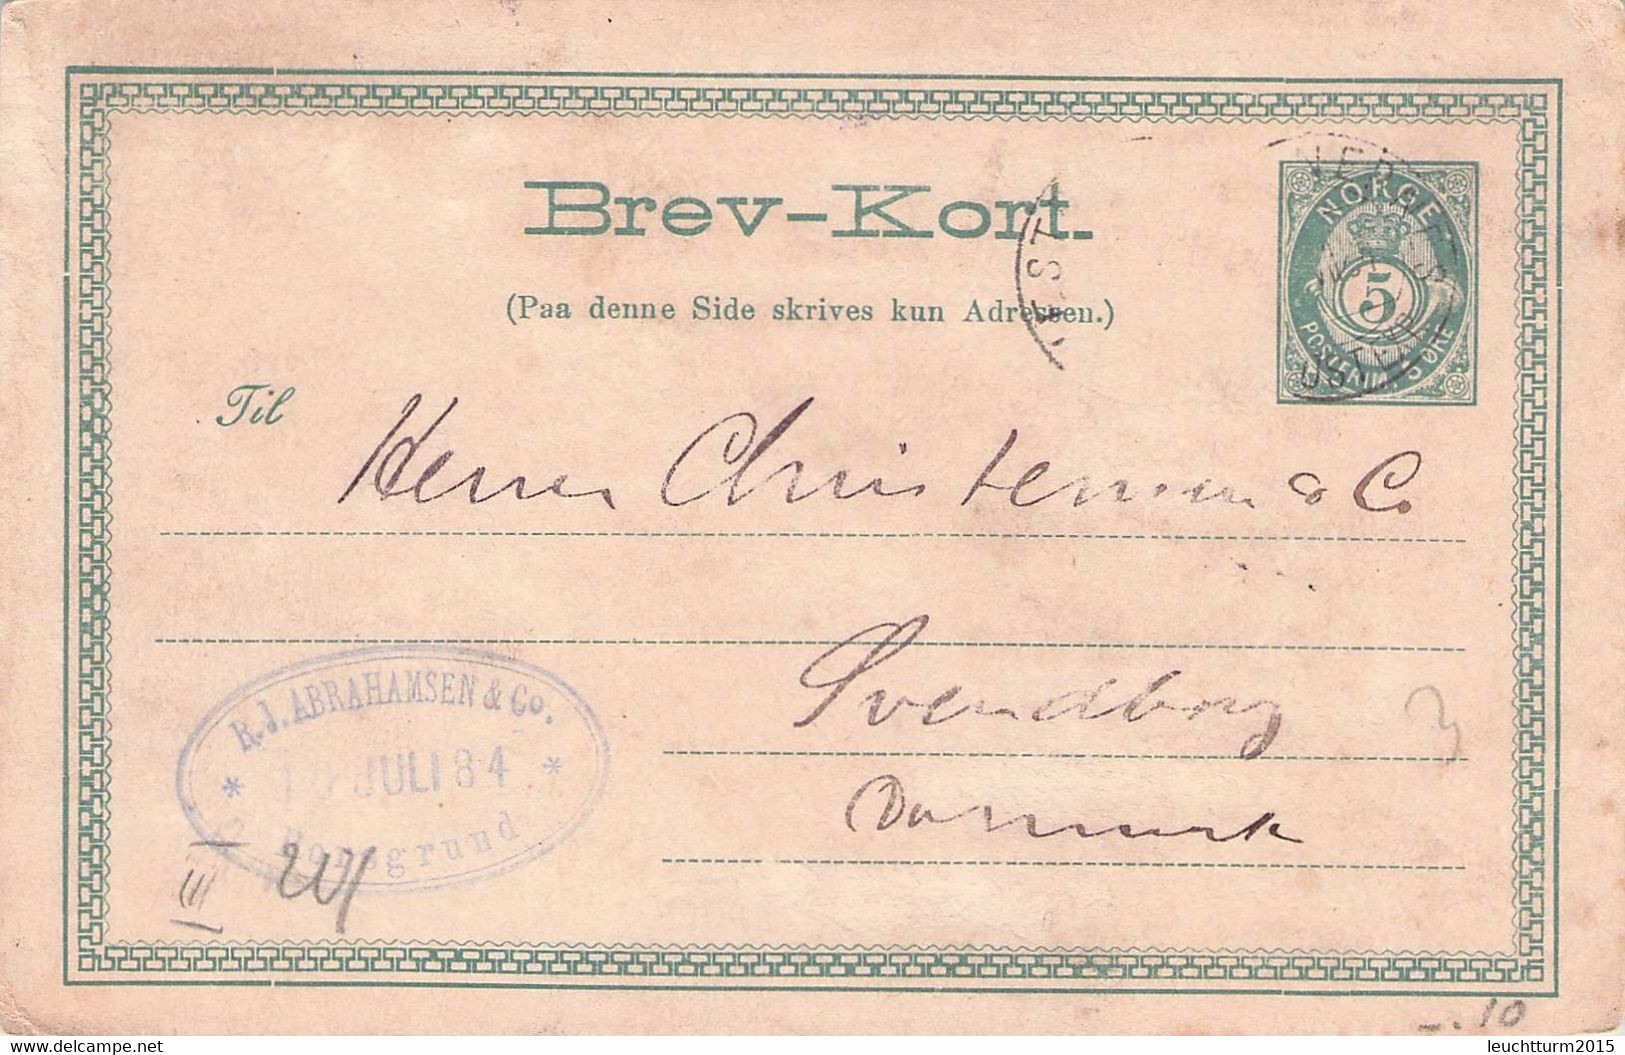 Brev-Kort.
(Paa denne Side skrives kun Adressen.)
NORGE
5
POSTFRIM. 5 ØRE
Til
Herrer Christensen & Co.
Svendborg
Danmark
R. J. ABRAHAMSEN & Co.
JULI 84
Porsgrund
III
-.10
leuchtturm2015